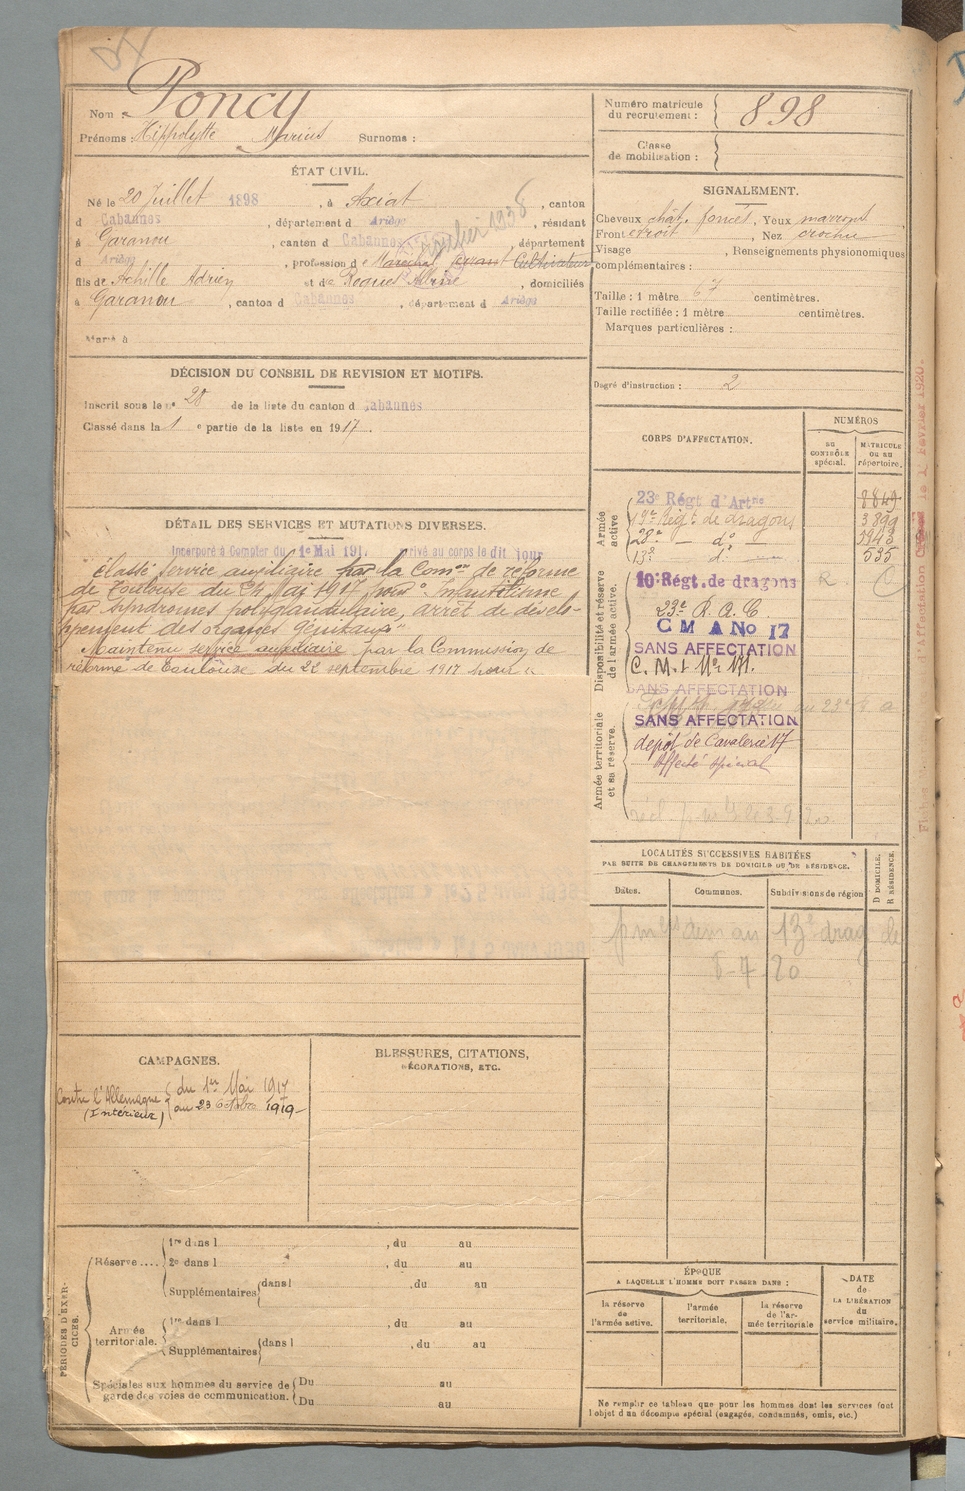 Nom : Poncy
Prénoms : Hippolytte Marius Surnoms :
Numéro matricule du recrutement : 898
Classe de mobilisation :
ÉTAT CIVIL.
Né le 20 Juillet 1898, à Axiat, canton
d Cabannes, département d Ariège, résidant
à Garanou, canton d Cabannes, département
d Ariège, profession de Maréchal ferrant Cultivateur
fils de Achille Adrien et de Roques Albine, domiciliés
à Garanou, canton d Cabannes, département d Ariège
Marié à
SIGNALEMENT.
Cheveux chât. foncés, Yeux marrons
Front étroit, Nez crochu
Visage , Renseignements physionomiques
complémentaires :
Taille : 1 mètre 67 centimètres.
Taille rectifiée : 1 mètre centimètres.
Marques particulières :
Degré d'instruction : 2
DÉCISION DU CONSEIL DE REVISION ET MOTIFS.
Inscrit sous le n° 28 de la liste du canton d Cabannes
Classé dans la 1 e partie de la liste en 1917.
DÉTAIL DES SERVICES ET MUTATIONS DIVERSES.
Incorporé à Compter du 1er Mai 191. arrivé au corps le dit jour
Classé service auxiliaire par la Comon de réforme
de Toulouse du 24 Mai 1917 pour : Infantilisme
par syndromes polyglandulaire, arrêt de dévelo-
ppement des organes génitaux"
Maintenu service auxiliaire par la Commission de
réforme de Toulouse du 22 septembre 1917 pour "
CORPS D'AFFECTATION.
NUMÉROS
DU CONTRÔLE spécial.
MATRICULE OU AU répertoire.
Armée active
23e Régt d'Artrie 8849
19e Régt de dragons 3899
28e — do 1943
13e do — 535
Disponibilité et réserve de l'armée active.
10e Régt. de dragons R C
23e R. A. C.
C M A No 17
SANS AFFECTATION
SANS AFFECTATION
Armée territoriale et sa réserve.
SANS AFFECTATION
dépôt de Cavalerie 17
Affecté spécial
LOCALITÉS SUCCESSIVES HABITÉES
PAR SUITE DE CHANGEMENTS DE DOMICILE OU DE RÉSIDENCE.
Dates. Communes. Subdivisions de région
D DOMICILE. R RÉSIDENCE.
au 13e drag
8-7 20
CAMPAGNES.
Contre l'Allemagne du 1er Mai 1917
(Intérieur) au 23 Octobre 1919
BLESSURES, CITATIONS,
DÉCORATIONS, ETC.
PÉRIODES D'EXERCICES.
Réserve....
1re dans l , du au
2e dans l , du au
Supplémentaires dans l , du au
Armée territoriale.
1re dans l , du au
Supplémentaires dans l , du au
Spéciales aux hommes du service de Du au
garde des voies de communication. Du au
ÉPOQUE
A LAQUELLE L'HOMME DOIT PASSER DANS :
la réserve de l'armée active.
l'armée territoriale.
la réserve de l'armée territoriale
DATE de LA LIBÉRATION du service militaire.
Ne remplir ce tableau que pour les hommes dont les services font
l'objet d'un décompte spécial (engagés, condamnés, omis, etc.)